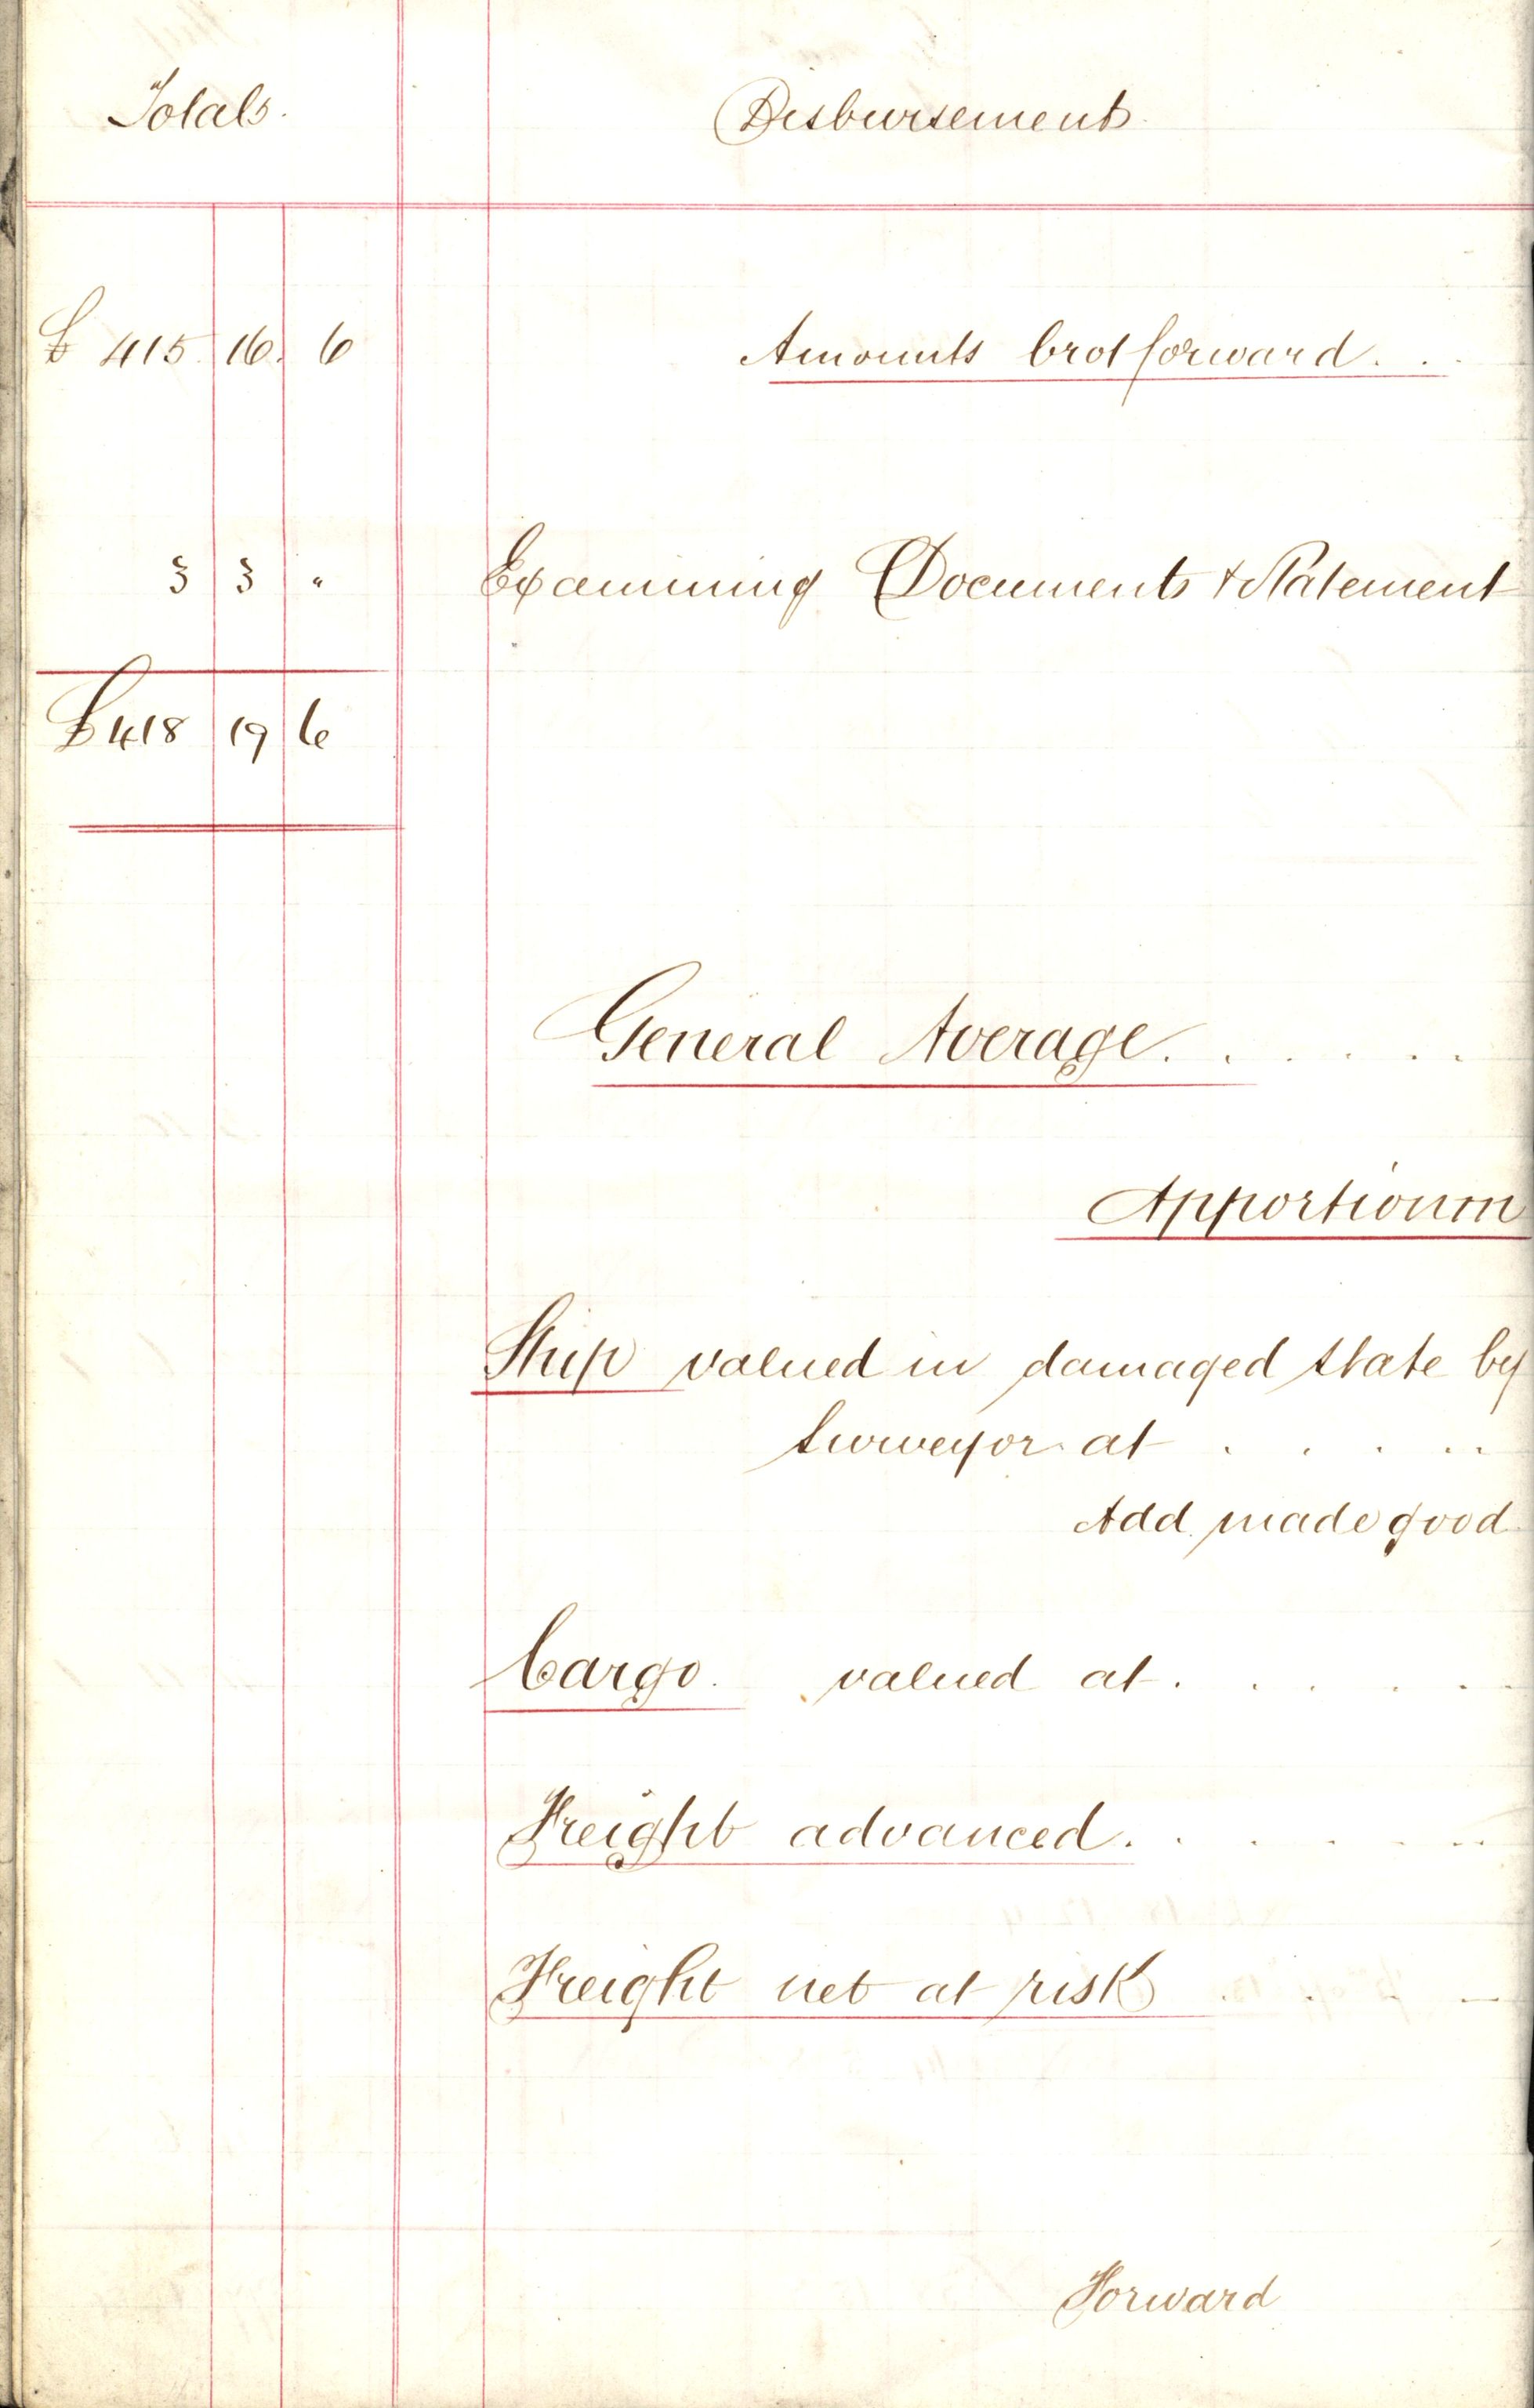 Totals. Disbursements.
£ 415. 16. 6 Amounts brot forward. . .
3 3 " Examining Documents & Statement
£ 418 19 6
General Average. . . . . . .
Apportionm
Ship valued in damaged state by
Surveyor at . . . . .
Add made good
Cargo. valued at . . . . . .
Freight advanced. . . . . . .
Freight net at risk . . . .
Forward